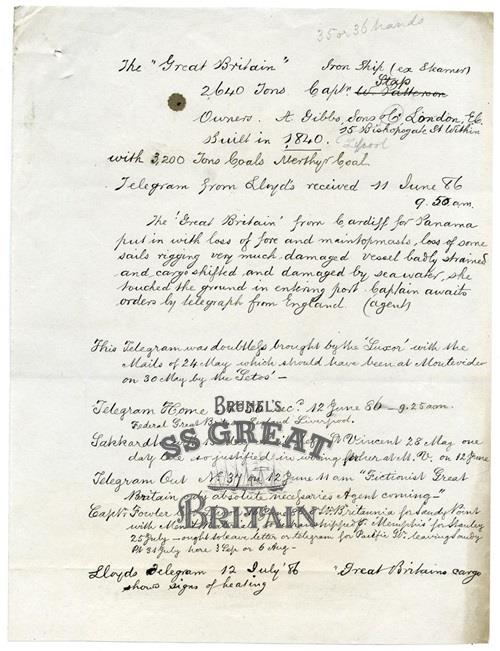 35 or 36 hands
The "Great Britain" Iron Ship (ex Steamer)
2,640 Tons Captn Stap W. Patterson
Owners. A Gibbs, Sons & Co London, E.C.
15 Bishopsgate St Within
Built in 1840. L'pool
with 3,200 Tons Coals Merthyr Coal.
Telegram from Lloyd's received 11 June 86
9.50 am.
The 'Great Britain' from Cardiff for Panama
put in with loss of fore and maintopmasts, loss of some
sails rigging very much damaged vessel badly strained
and cargo shifted and damaged by sea water, she
touched the ground in entering port. Captain awaits
orders by telegraph from England. (agent)
This Telegram was doubtless brought by the 'Luxor' with the
Mails of 24 May which should have been at Montevideo
on 30 May by the 'Setos' -
Telegram Home 12 June 86 - 9.25 am.
Federal Great Liverpool.
Vincent 28 May one
day so justified in on 12 June
Telegram Out 12 June 11 am "Fictionist Great
Britain absolute necessaries Agent coming -"
Captn Fowler Britannia for Sandy Point
with 'Memphis' for Stanley
25 July - ought to leave letter or telegram for Pacific leaving Sandy
Pt 31 July here 3 Sep or 6 Aug -
Lloyds Telegram 12 July '86 "Great Britains cargo
shows signs of heating
BRUNEL'S
SS GREAT
BRITAIN